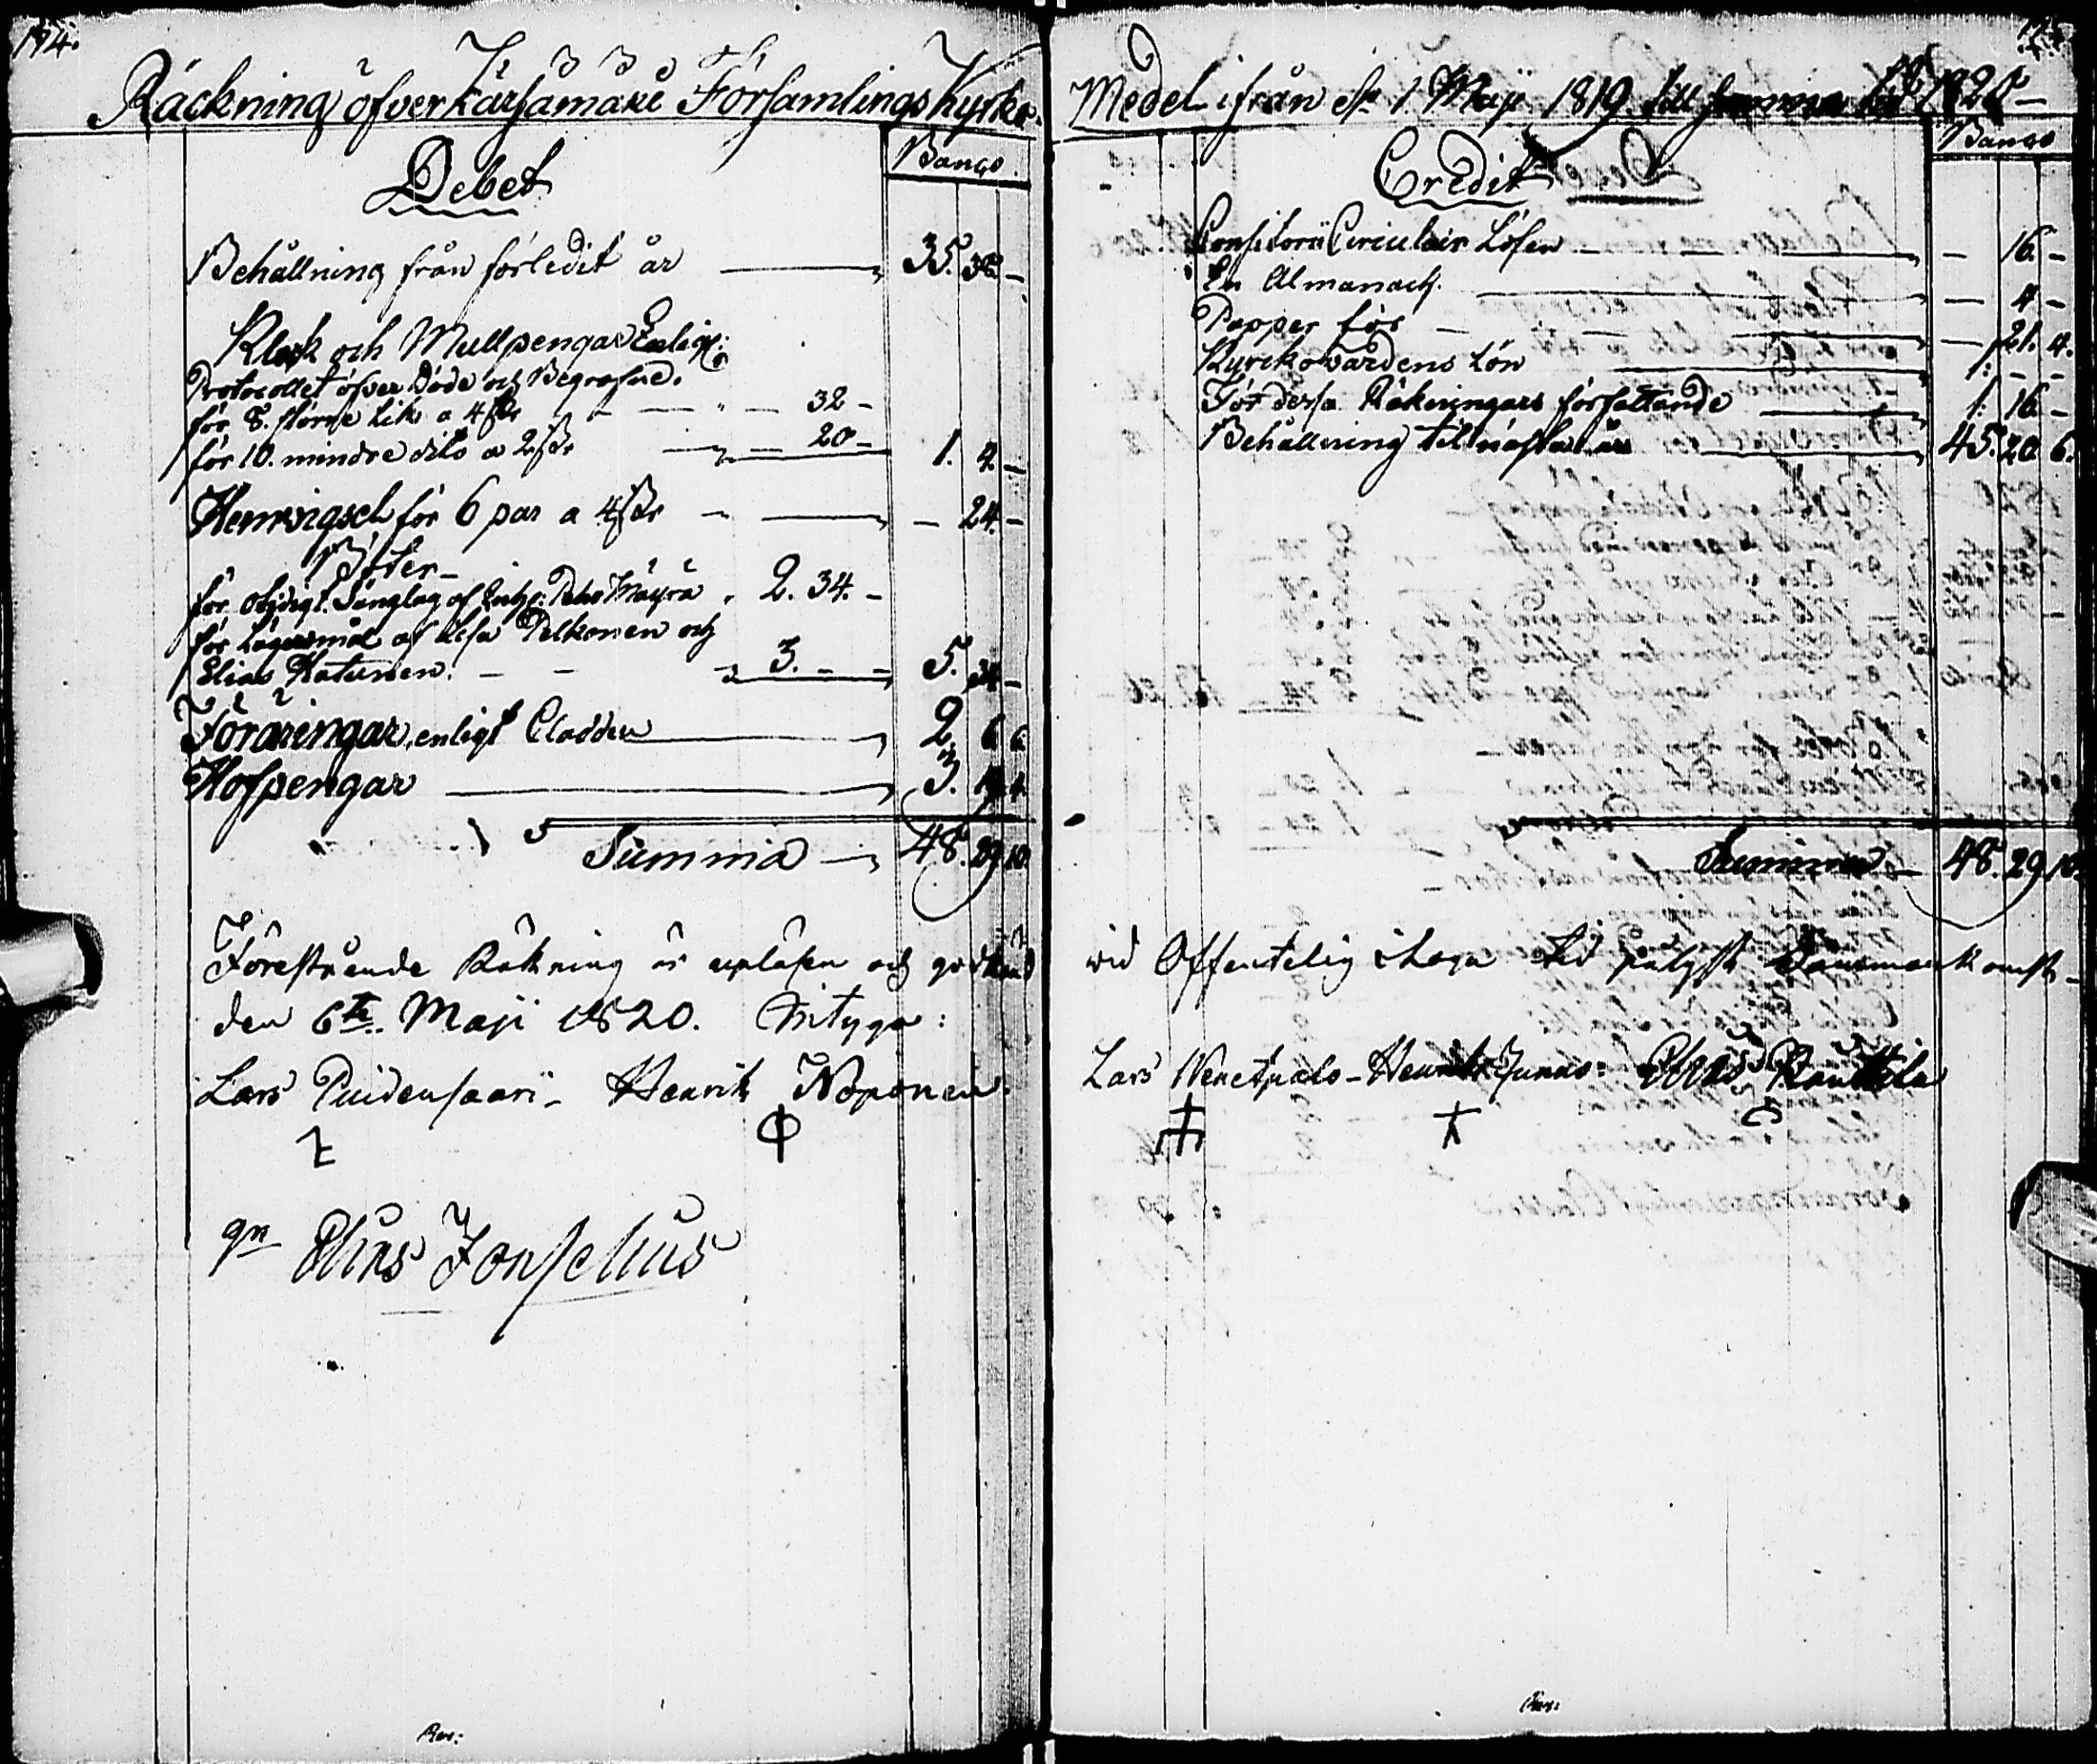 174.
Räckning öfver Kärsämäki Församlings Kyrko-
Debet
Banco
Behållning från förledit år 35. 36. -
Klock och Mullpengar Enligt:
Protocollet öfver Döde och Begrafne.
för 8. större Lik a 4 sk - 32 -
för 10. mindre dito a 2 sk - 20 - 1. 4. -
Hemvigsel för 6 par a 4 sk - - 24. -
Böter -
för otidigt Sänglag af Peho Mäyrä 2. 34. -
för Lägersmål af Lisa Pelkonen och
Elias Katunen. - 3. - - 5. 34. -
Föräringar, enligt Cladden 2. 6. 6.
Hofpengar 3.
Summa 48. 29. 10.
Förestående Räkning är upläsen och godkänd
den 6te Maji 1820. Intyga:
Lars Puidensaari - Henrik Noponen.
gm Elias Fonselius
Medel ifrån d. 1. Maji 1819. till samma tid 1820 -
Credit
Banco
Consistorii Circulair Lösen - - 16. -
En Almanach. - 4 -
Papper för - - 21. 4.
Kyrckovärdens Lön 1. - -
För dessa Räkningars författande 1. 16. -
Behållning til nästa år 45. 20. 6.
Summa 48. 29. 10.
vid Offentelig i Laga tid Sockenstämma
Lars Venetpalo - Henrik Junno: Elias Rauttila